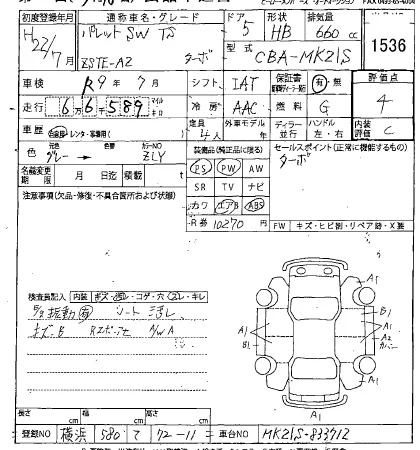 初度登録年月 通称車名・グレード ドア 形状 排気量
H22/7月 パレットSW TS 5 HB 660 cc 1536
ZSTE-A2 ターボ 型式 CBA-MK21S
車検 R9年 7月 シフト IAT 保証書 有・無 評価点
走行 66589 冷房 AAC 燃料 G 4
車歴 自家用・レンタ・事業用 定員 4人 外車モデル ディーラー 並行 ハンドル 左・右 内装評価 C
色 グレー→ 色替 カラーNO ZLY 装備品(純正品に限る) セールスポイント(正常に機能するもの)
名義変更期限 月 日迄 積載 t PS PW AW ターボ
注意事項(欠品・修復・不具合箇所および状態) SR TV ナビ
カワ エアB ABS
R券 10270円 FW キズ・ヒビ割・リペア跡・X要
検査員記入 内装 キズ・汚レ・コゲ・穴・スレ・キレ
振動有 シート汚レ
キズ・B Rスポイラー A/W A
A1
A1 B1
A1 A1
B1 A2
カバー
A1
A1
長さ cm 幅 cm 高さ cm
登録NO 横浜 580 て 72-11 車台NO MK21S-833712